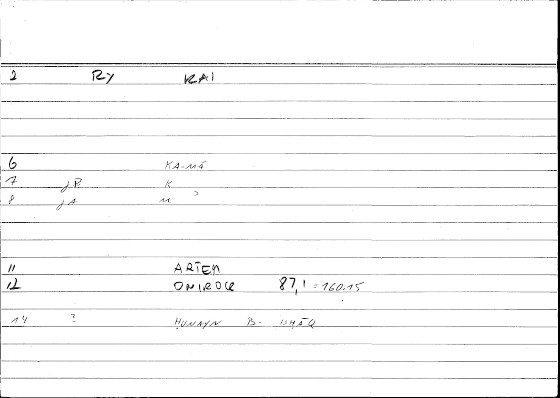 2 RY KAI
6 KA-MÁ
7 JR K
8 JA M ?
11 ARTEM
12 ONIROCR 87,1 = 160.15
14 ? HUNAYN B- IṢḤĀQ